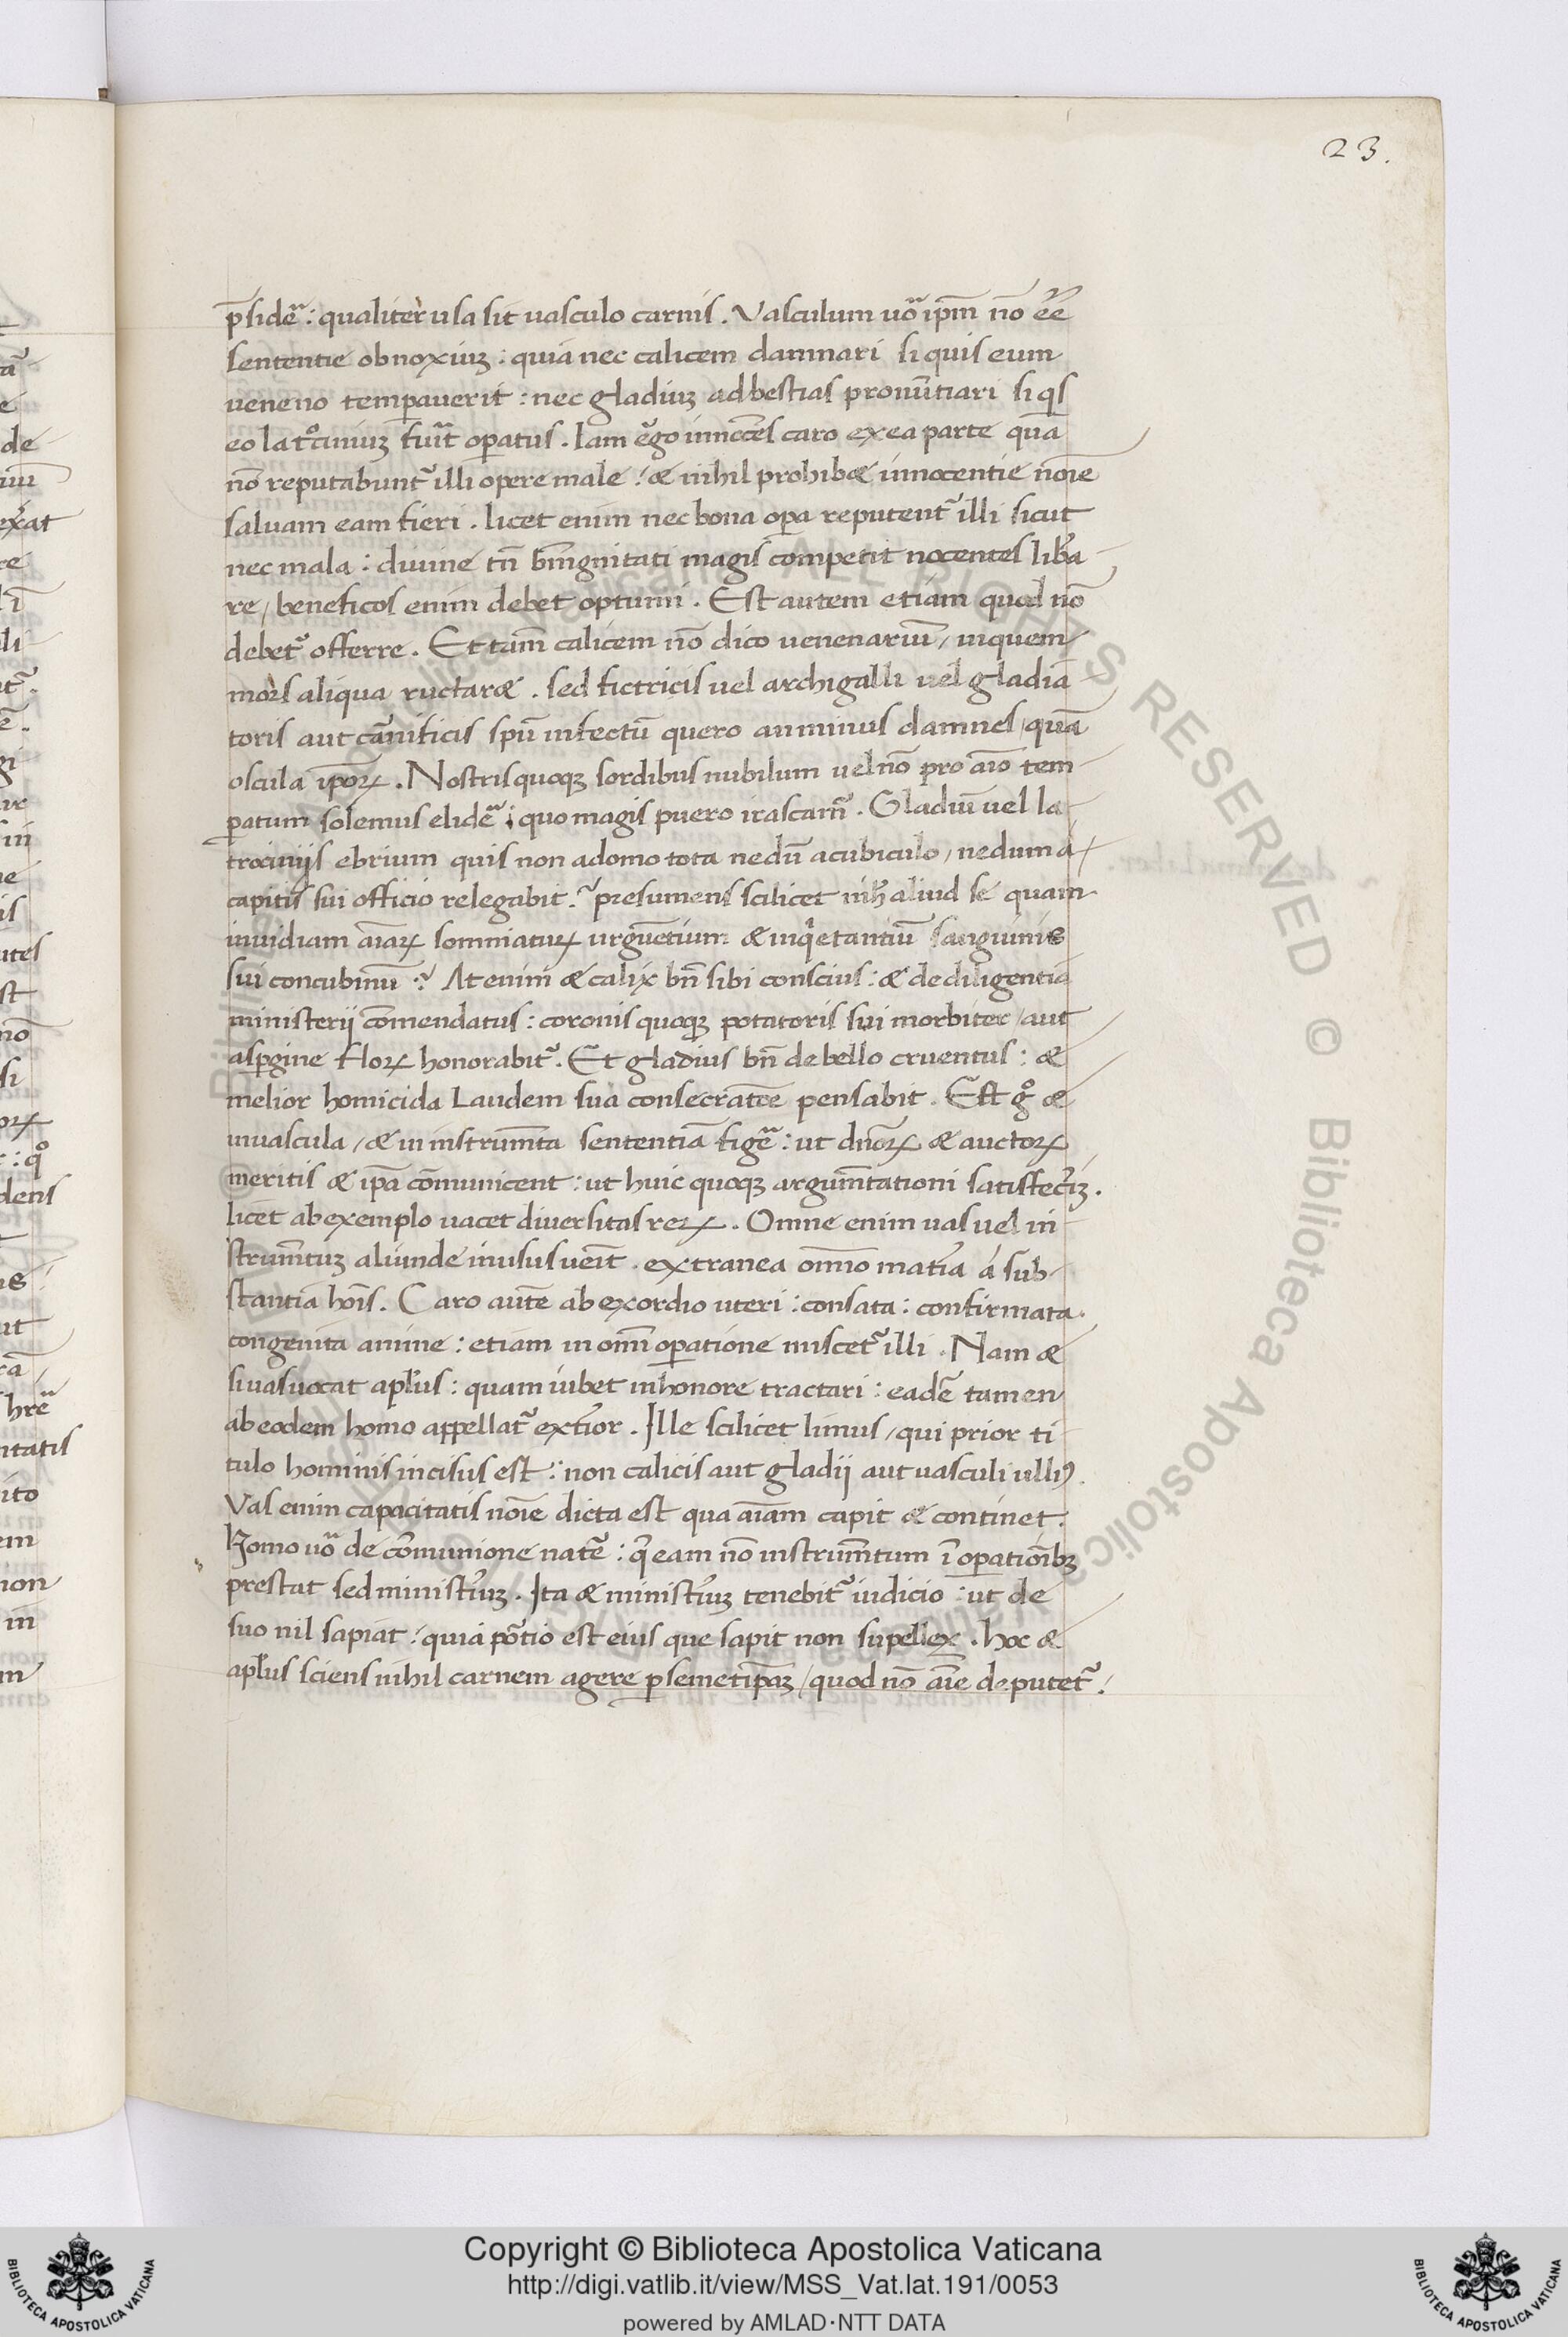 23.
p̄sidēt: qualiter usa sit vasculo carnis. Vasculum uō ip̄m nō eē
sententie obnoxiuꝫ: quia nec calicem damnari si quis eum
veneno temꝑaverit: nec gladiuꝫ ad bestias pronūtiari si q̄s
eo latͦciniuꝫ fuīt oꝑatus. Iam ẽgo innocẽs caro ex ea parte quā
nō reputabunt᷑ illi opere male: & nihil prohibet innocentie noīe
salvam eam fieri. licet enim nec bona oꝑa reputent᷑ illi sicut
nec mala: divine tn̄ bn̄ignitati magis competit nocentes libẽa
re, beneficos enim debet optumi. Est autem etiam quod nō
debet᷑ offerre. Et tam̄ calicem nō dico venenariū, in quem
mors aliqua ructaret. sed fictricis vel archigalli vel gladiā
toris aut carnificis spū infectū quero an minus damnes, quā
oscula ipoꝝ. Nostris quoqꝫ sordibus nubilum vel nō pro aīo tem
ꝑatum solemus elidẽ: quo magis puero irascam᷑. Gladiū vel la
trociniis ebrium quis non a domo tota nedū a cubiculo, nedum a
capitis sui officio relegabit? presumens scilicet nih̄ aliud se quam
invidiam aīaꝝ somniatuꝝ urguẽtium & inq̄etantiū sanguinis
sui concubinū? At enim & calix bn̄ sibi conscius: & de diligentia
ministerij cōmendatus: coronis quoqꝫ potatoris sui morbiter, aut
asꝑgine floꝝ honorabit᷑. Et gladius bn̄ de bello cruentus: &
melior homicida Laudem sua consecratōe pensabit. Est gͦ &
in vascula, & in instrum̄ta sententiā figẽ: ut dn̄oꝝ & auctoꝝ
meritis & ip̄a cōmunicent: ut huic quoqꝫ argum̄tationi satisfecẽiꝫ.
licet ab exemplo vacet diversitas reꝝ. Omne enim vas vel in
strum̄tuꝫ aliunde in usus veīt. extranea omīno matẽia á sub
stantia hoīs. Caro autē ab exordio uteri: consata: confirmata.
congenita anime: etiam in om̄i oꝑatione miscet᷑ illi. Nam &
si vas vocat aplūs: quam iubet in honore tractari: eadē tamen
ab eodem homo appellat᷑ extẽior. Ille scilicet limus, qui prior ti
tulo hominis incisus est: non calicis aut gladii aut vasculi ulliꝰ.
Vas enim capacitatis noīe dicta est qua aīam capit & continet.
Homo uō de cōmunione natē: q̄ eam nō instrum̄tum ī oꝑationībꝫ
prestat sed ministẽiuꝫ. Ita & ministẽiuꝫ tenebit᷑ iudicio: ut de
suo nil sapiat: quia pōtio est eius que sapit non suꝑellex. hoc &
aplūs sciens nihil carnem agere ꝑ semetip̄aꝫ, quod nō aīe deputet᷑:
Copyright © Biblioteca Apostolica Vaticana
http://digi.vatlib.it/view/MSS_Vat.lat.191/0053
powered by AMLAD·NTT DATA